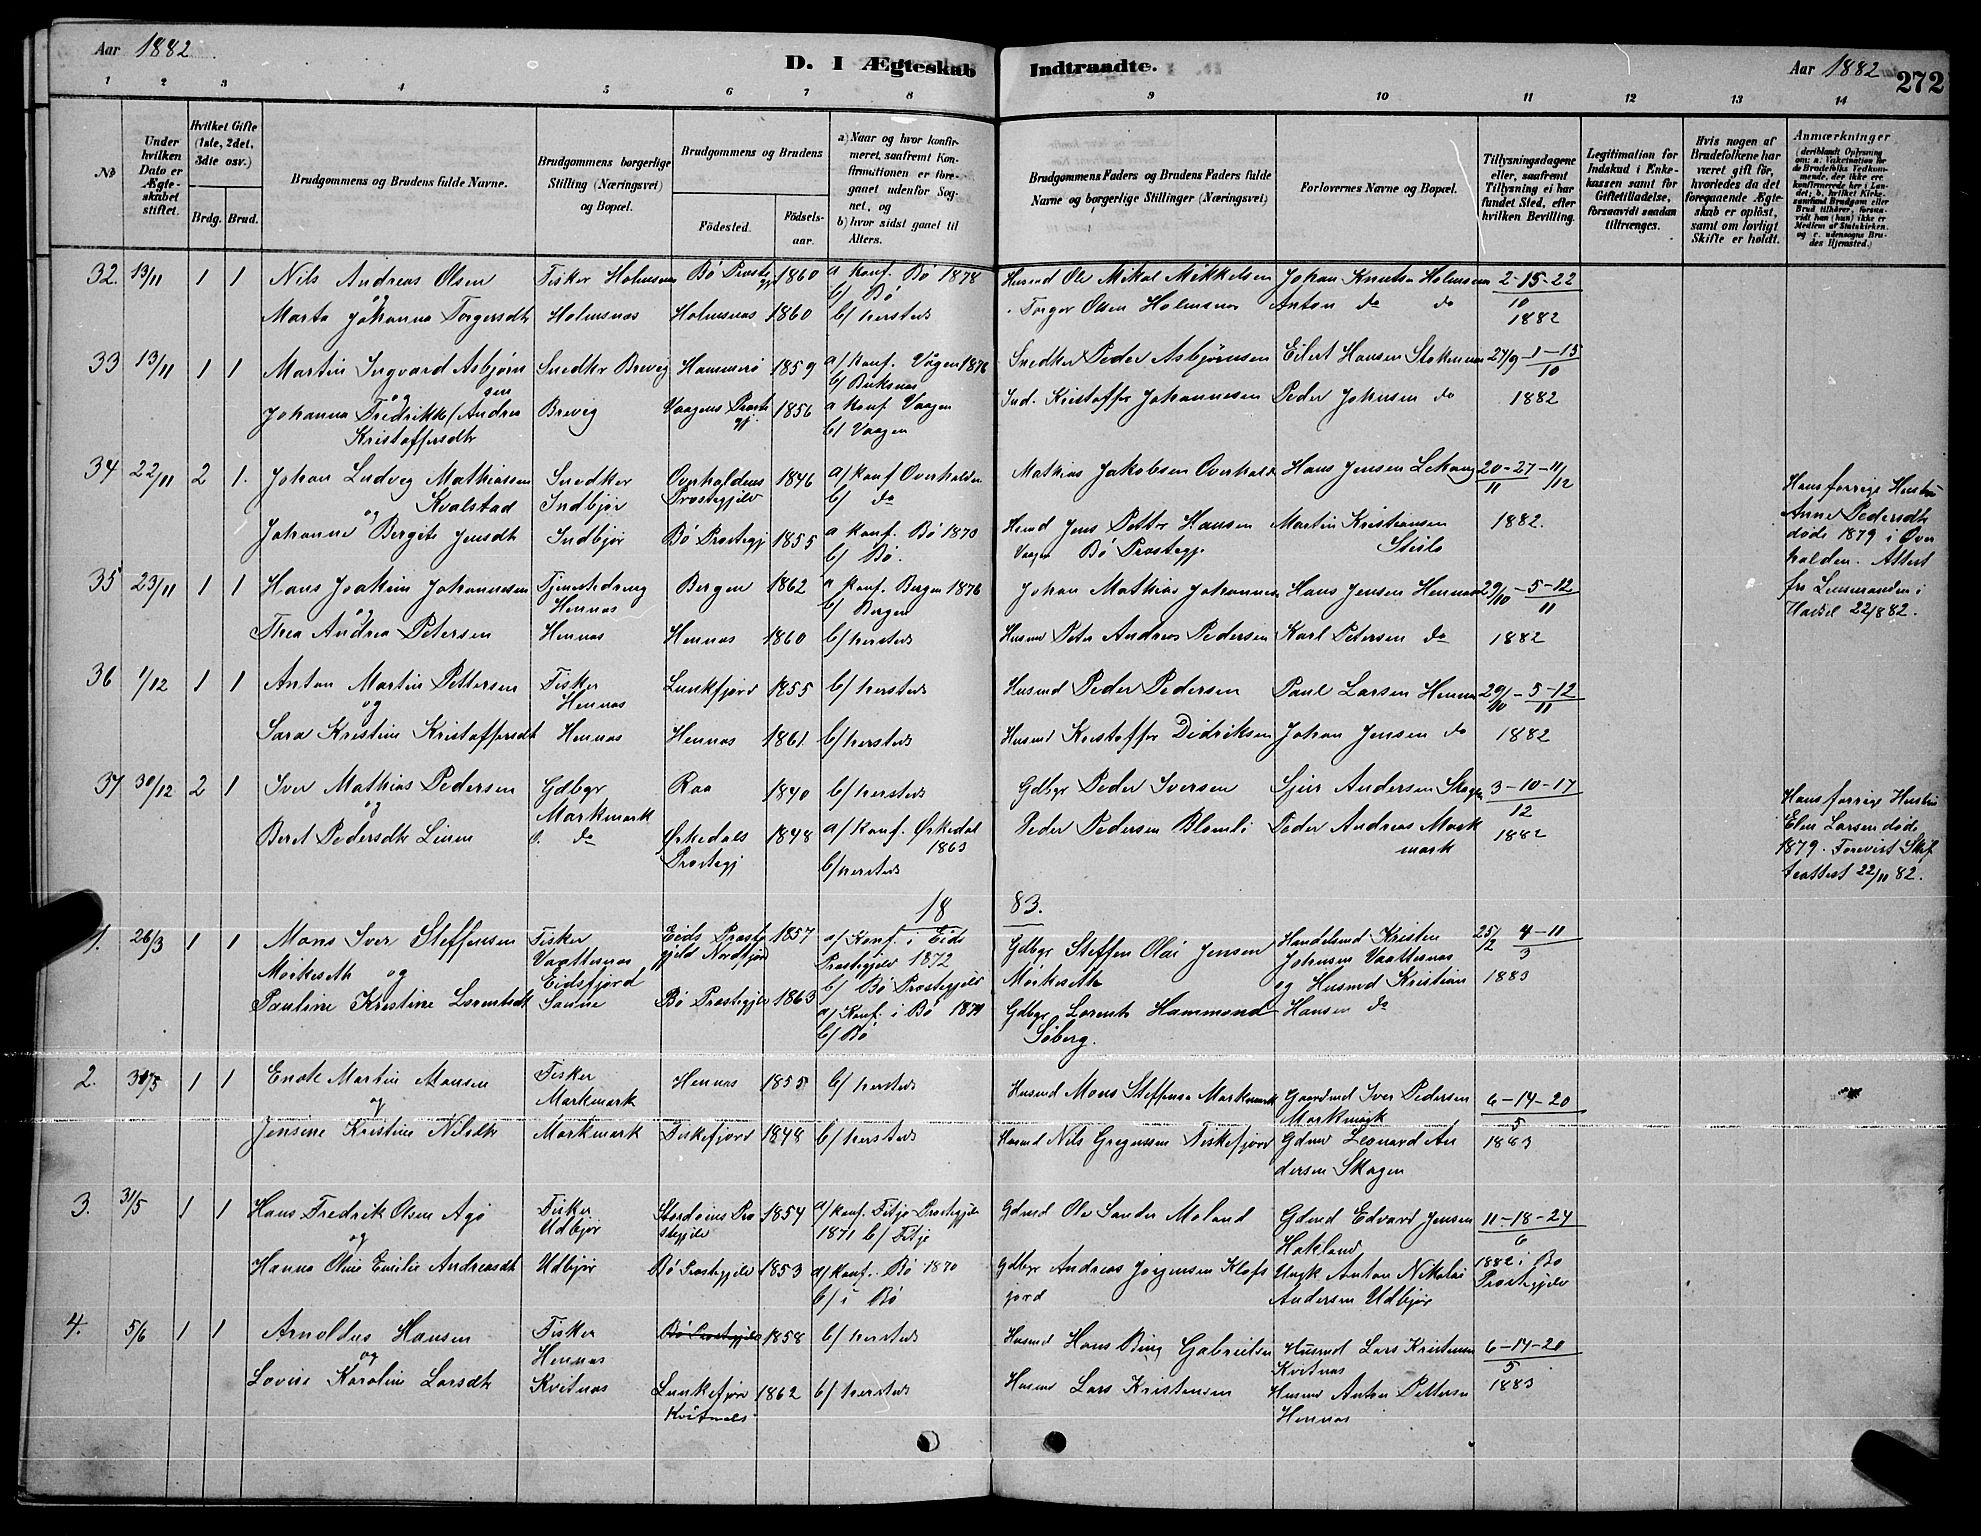 Aar 1882
D. I Ægteskab Indtraadte.
Aar 1882
272
1 2 3 4 5 6 7 8 9 10 11 12 13 14
No
Under hvilken Dato er Ægteskabet stiftet.
Hvilket Gifte (1ste, 2det, 3die osv.)
Brdg. Brud.
Brudgommens og Brudens fulde Navne.
Brudgommens borgerlige Stilling (Næringsvei) og Bopæl.
Brudgommens og Brudens
Fødested.
Fødselsaar.
a) Naar og hvor konfirmeret, saafremt Konfirmationen er foregaaet udenfor Sognet, og
b) hvor sidst gaaet til Alters.
Brudgommens Faders og Brudens Faders fulde Navne og borgerlige Stillinger (Næringsvei)
Forlovernes Navne og Bopæl.
Tillysningsdagene eller, saafremt Tillysning ei har fundet Sted, efter hvilken Bevilling.
Legitimation for Indskud i Enkekassen samt for Giftetilladelse, forsaavidt saadan tiltrænges.
Hvis nogen af Brudefolkene har været gift før, hvorledes da det foregaaende Ægteskab er opløst, samt om lovligt Skifte er holdt.
Anmærkninger
32. 13/11 1 1 Nils Andreas Olsen Fisker Holmsnes Bø Prostegj 1860 a konf. Bø 1878 Husmd Ole Mikal Mikkelsen Johan Knutsen Holmsnes 2-15-22
og b/ Bø 10
Marta Johanna Torgersdtr Holmsnæs Holmsnæs 1860 b/ hersteds Torger Olsen Holmsnæs Anton do do 1882
33 13/11 1 1 Martin Ingvard Asbjørnsen Snedker Brevig Hammerø 1859 a/ konf. Vågen 1876 Snedker Peder Asbjørnsen Eilert Hansen Stokmsn 24/9-1-15
og b/ Buksnes 10
Johanna Fredrikke Andrea Brevig Vaagens Prostegj. 1856 a konf Vaagen Ind. Kristoffer Johannesen Peder Johnsen do 1882
Kristoffersdtr b/ Vaagen
34 22/11 2 1. Johan Ludvig Mathiassen Snedker Overhaldens 1846 a/ konf Overhalden Mathias Jakobsen Overhald Hans Jensen Lekang 20-27-11/12
Kvalstad Indbjør Prostegjeld b/ do 11
og
Johanne Bergite Jensdtr Indbjør Bø Prostegj 1855 a konf. Bø 1870 Husmd Jens Petter Hansen Martin Kristiansen 1882.
b/ Bø. Vaagen Bø Prostegj. Steilo
Hans forrige Hustru
Anne Pedersdtr
døde 1879 i Over
halden. Attest
fra Lensmanden i
Hadsel 22/8 82.
35 23/11 1 1 Hans Joakim Johannessen Tjenestedreng Bergen 1862 a konf. Bergen 1876 Johan Mathias Johannes Hans Jensen Hennæs 29/10-5-12
og Hennæs b/ Bergen 11
Thea Andrea Petersen Hennæs Hennæs 1860 b/ hersteds Husmd Peter Andreas Pedersen Karl Petersen do 1882
36 1/12 1 1 Anton Martin Pettersen Fisker Lunkfjord 1855 b/ hersteds Husmd Peder Pedersen Paul Larsen Hennæs 29/10-5-12
og Hennæs 11
Sara Kristine Kristoffersdt Hennæs Hennæs 1861 b/ hersteds Husmd Kristoffer Didriksen Johan Jensen do 1882
37 30/12 2 1 Iver Mathias Pedersen Gdbgr Raa 1840 b/ hersteds Gdbgr Peder Iversen Sjur Andersen Skagen 3-10-17
og Markmark 12
Beret Pedersdtr Linem do Ørkedals 1848 a/ Konf. Ørkedal Peder Pedersen Blomli Peder Andreas Mark 1882
Prostegj 1863 mark
b/ hersteds
Hans forrige Hustru
Elen Larsen døde
1879. Forevist Skif
teattest 22/11 82.
18 83.
1. 26/3 1 1 Mons Iver Steffensen Fisker Eids Prosteg 1857 a/ Konf. i Eids Gdbgr Steffen Olai Jensen Handelsmd Kristen 25/2 4-11
Mørkeseth og Vaattesnæs gjeld Nordfjord Prostegjeld 1872 Mørkeseth Johnsen Vaattesnæs 3
Eidsfjord b/ Bø Prostegjeld og Husmd Kristian 1883
Pauline Kristine Lorentsdt Sanne Bø Prostegjeld 1863 a/ Konf. i Bø 1879 Gdbgr Lorents Hammond Hansen do
b/ Bø Søberg.
2. 30/5 1 1 Enok Martin Monsen Fisker Hennæs 1855 b/ hersteds Husmd Mons Steffensen Markmark Gaardmd Iver Pedersen 6-14-20
og Markmark Markmark 5
Jensine Kristine Nilsdtr Markmark Fiskefjord 1848 b/ hersteds Husmd Nils Gregussen Fiskefjord Gdmd Leonard An 1883
dersen Skagen
3. 31/5 1 1 Hans Fredrik Olsen Agø Fisker Stordøens Pro 1854 a/ konf. Fitje Prostegjeld Gdmd Ole Sander Moland Gdmd Edvard Jensen 11-18-24
og Udbjør stegjeld 1871 b/ Fitje Hokland 6
Hanna Oline Emilie Andreasdt Udbjør Bø Prostegjeld 1853 a/ konf. Bø 1870 Gdbgr Andreas Jørgensen Klofs Ungk Anton Nikolai 1882 i Bø
b/ i Bø jord Andersen Udbjør Prostegjeld
4. 5/6 1 1 Arnoldus Hansen Fisker Bø Prostegjeld 1858 b/ hersteds Husmd Hans Bing Gabrielsen Husmd Lars Kristensen 6-14-20
og Hennæs Kvitnæs 5
Lovise Karoline Larsdtr Kvitnæs Lunkefjord 1862 b/ hersteds Husmd Lars Kristensen Husmd Anton Pettersen 1883
Kvitnæs Hennæs